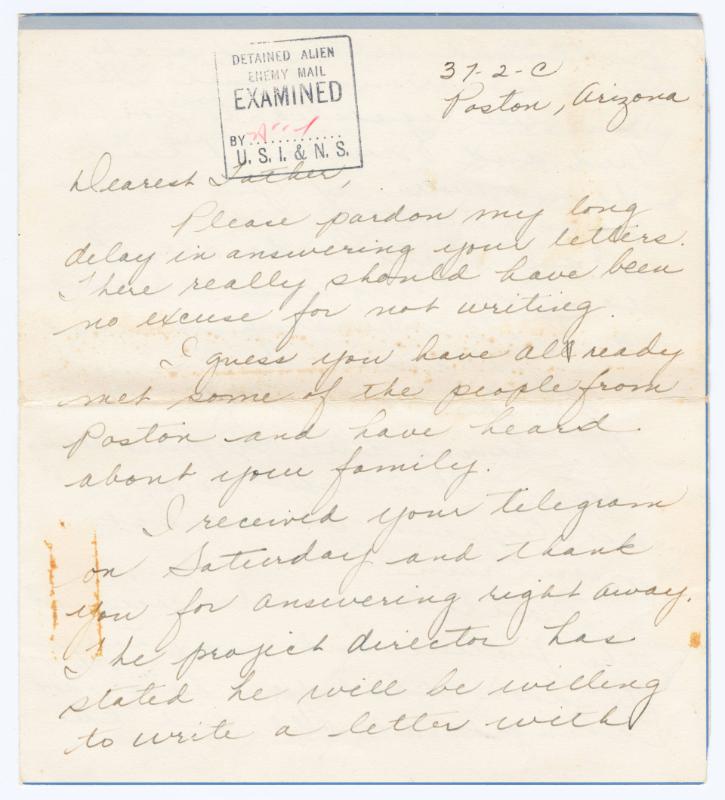 DETAINED ALIEN
ENEMY MAIL
EXAMINED
BY..............
U. S. I. & N. S.
37-2-C
Poston, Arizona
Dearest Father,
Please pardon my long
delay in answering your letters.
There really should have been
no excuse for not writing.
I guess you have already
met some of the people from
Poston and have heard
about your family.
I received your telegram
on Saturday and thank
you for answering right away.
The project director has
stated he will be willing
to write a letter with